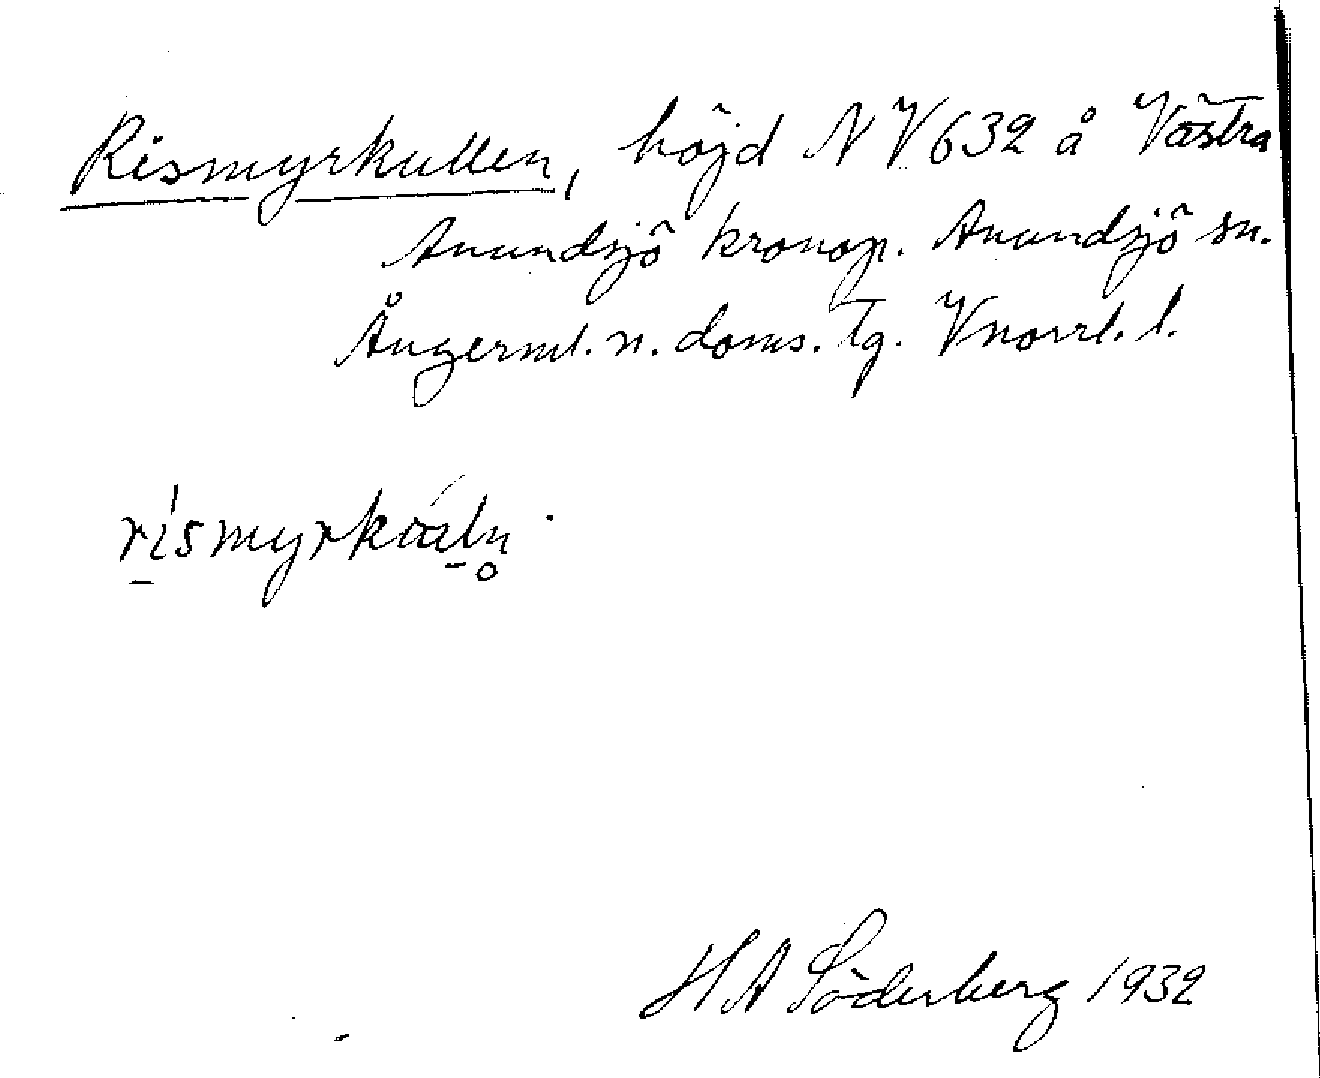 Rismyrkullen, höjd NV 632 å Västra
Anundsjö kronop. Anundsjö sn.
Ångerml. n. doms. tg. Vnorrl. l.
H A Söderberg 1932